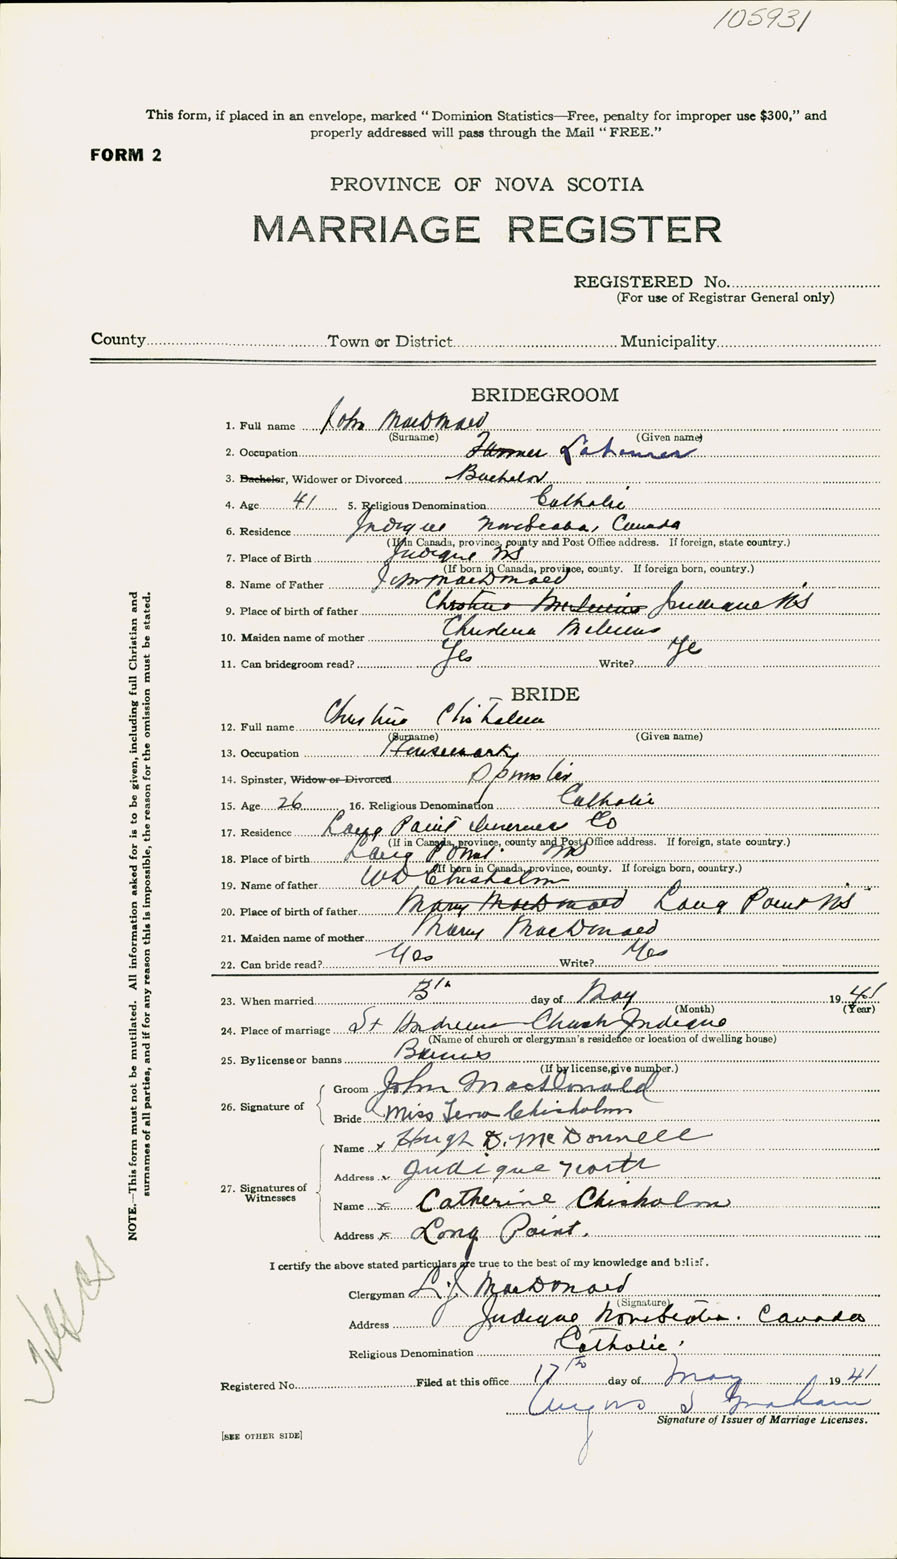 105931
This form, if placed in an envelope, marked "Dominion Statistics—Free, penalty for improper use $300," and
properly addressed will pass through the Mail "FREE."
FORM 2
PROVINCE OF NOVA SCOTIA
MARRIAGE REGISTER
REGISTERED No.
(For use of Registrar General only)
County Town or District Municipality
BRIDEGROOM
1. Full name John MacDonald
(Surname) (Given name)
2. Occupation Farmer Labourer
3. Bachelor, Widower or Divorced Bachelor
4. Age 41 5. Religious Denomination Catholic
6. Residence Judique Canada
(If in Canada, province, county and Post Office address. If foreign, state country.)
7. Place of Birth Judique NS
(If born in Canada, province, county. If foreign born, country.)
8. Name of Father John MacDonald
9. Place of birth of father Judique NS
10. Maiden name of mother
11. Can bridegroom read? Yes Write? Ye
BRIDE
12. Full name Christine Chisholm
(Surname) (Given name)
13. Occupation Housework
14. Spinster, Widow or Divorced Spinster
15. Age 26 16. Religious Denomination Catholic
17. Residence Long Point Inverness Co
(If in Canada, province, county and Post Office address. If foreign, state country.)
18. Place of birth Long Point NS
(If born in Canada, province, county. If foreign born, country.)
19. Name of father WD Chisholm
20. Place of birth of father Mary MacDonald Long Point NS
21. Maiden name of mother Mary MacDonald
22. Can bride read? Yes Write? Yes
23. When married day of May 1941
(Month) (Year)
24. Place of marriage St Andrews Church Judique
(Name of church or clergyman's residence or location of dwelling house)
25. By license or banns Banns
(If by license, give number.)
26. Signature of
Groom John MacDonald
Bride Miss Chisholm
27. Signatures of Witnesses
Name x Hugh D. McDonnell
Address x Judique North
Name x Catherine Chisholm
Address x Long Point.
I certify the above stated particulars are true to the best of my knowledge and belief.
Clergyman L. J. MacDonald
(Signature)
Address Judique Nova Scotia. Canada
Religious Denomination Catholic.
Registered No. Filed at this office 17th day of May 1941
Angus S Graham
Signature of Issuer of Marriage Licenses.
[SEE OTHER SIDE]
NOTE.—This form must not be mutilated. All information asked for is to be given, including full Christian and
surnames of all parties, and if for any reason this is impossible, the reason for the omission must be stated.